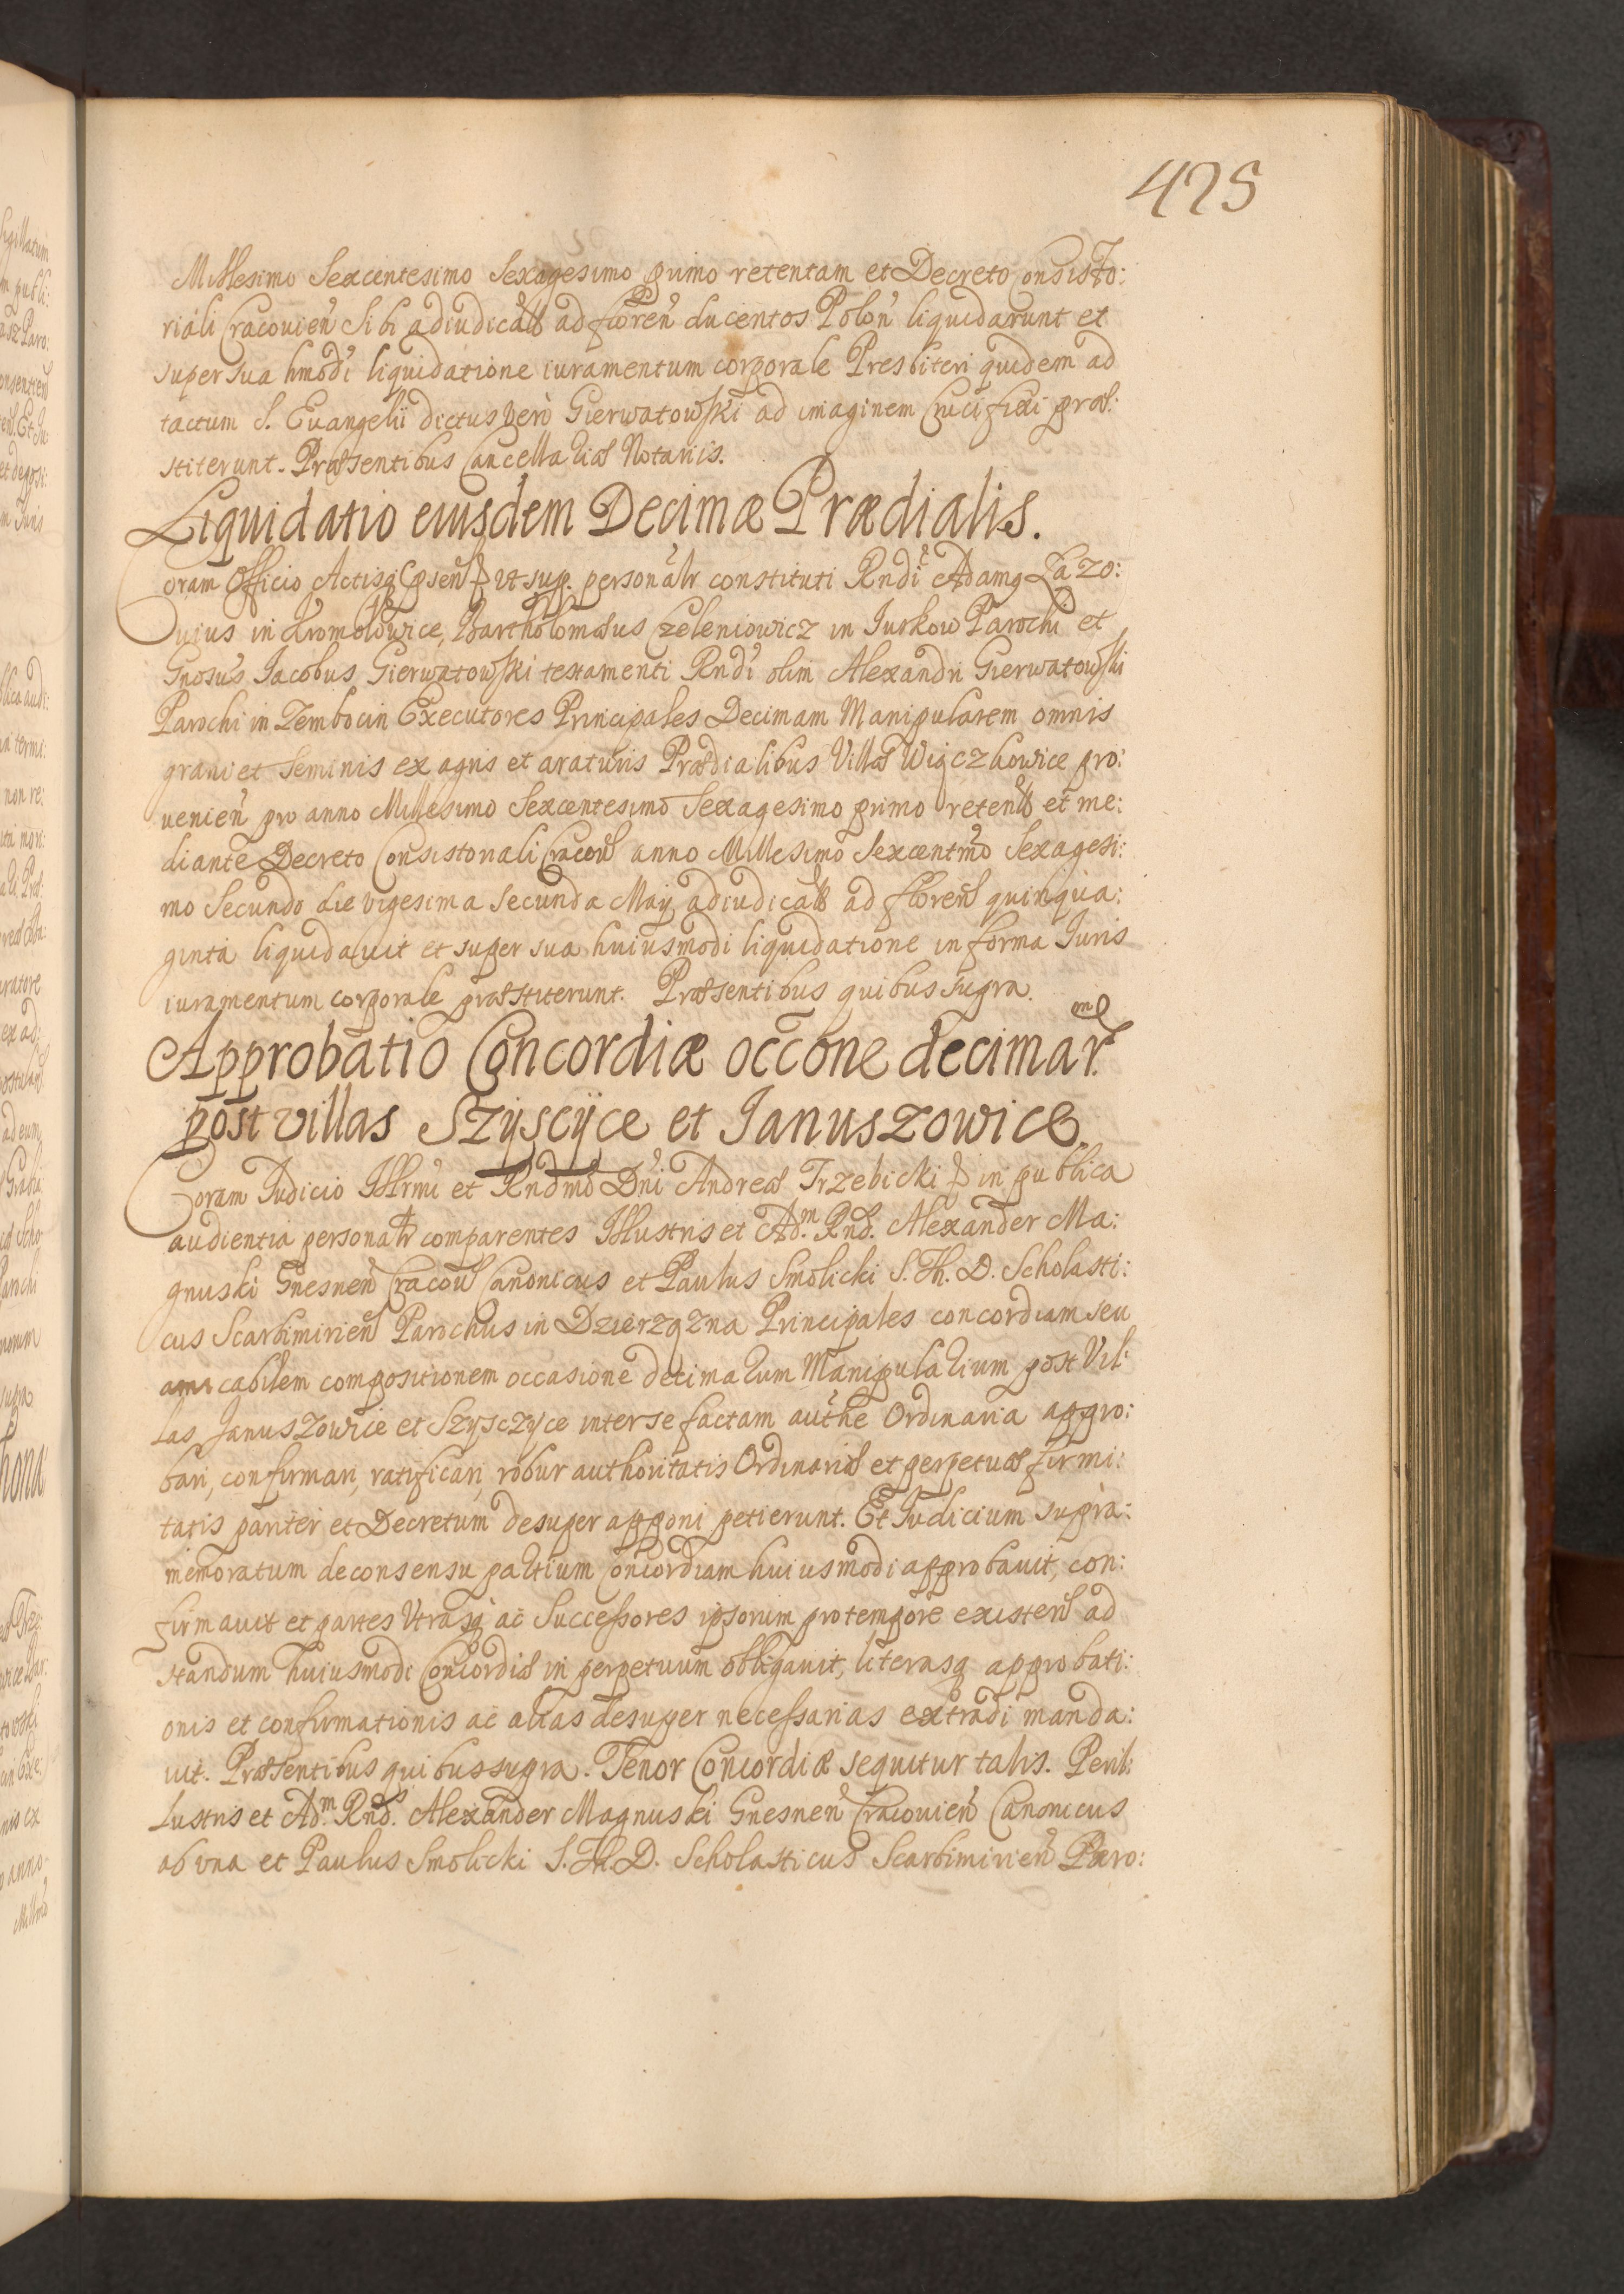 475
Millesimo Sexcentesimo Sexagesimo primo retentam et Decreto Consisto:
riali Cracouien̄ Sibi adiudicatā ad floren̄ ducentos Polon̄ liquidarunt et
super sua hmōdi liquidatione iuramentum corporale Presbiteri quidem ad
tactum S. Euangelii dictus verò Gierwatowski ad imaginem Crucifixi præ:
stiterunt. Præsentibus Cancellariæ Notariis.
Liquidatio eiusdem Decimæ Prædialis.
Coram Officio Actisq̨ ut sup. personalr̄ constituti Rndī Adamq
uius in Kromołowice, Bartholomæus Czeleniowicz in Jurkow Parochi et
Gnosus Jacobus Gierwatowski testamenti Rndī olim Alexandri Gierwatowski
Parochi in Zembocin Executores Principales Decimam Manipularem omnis
grani et Seminis ex agris et araturis Prædialibus Villæ Więczkowice pro:
uenien̄ pro anno Millesimo Sexcentesimo Sexagesimo primo retentā et me:
diante Decreto Consistoriali Cracou̅ anno Millesimo Sexcentm̄o Sexagesi:
mo Secundo die vigesima secunda Maij adiudicatā ad floren̄ quinqua:
ginta liquidauit et super sua huiusmodi liquidatione in forma Iuris
iuramentum corporale præstiterunt. Præsentibus quibus supra.
Approbatio Concordiæ occōne decimar.
post villas Szÿscÿce et Januszowice.
Coram Judicio Illrmī et Rndm̄o Dnī Andreæ Trzebicki in publica
audientia personalr̄ comparentes Illustris et Adm. Rnd. Alexander Ma:
gnuski Gnesnen̄ Cracou̅ Canonicus et Paulus Smolicki S. Th. D. Scholasti:
cus Scarbimirien̄ Parochus in Dzierzązna Principales concordiam seu
amicabilem compositionem occasione decimarum Manipularium post Vil:
las Januszowice et Szysczyce inter se factam authē Ordinaria appro:
bari, confirmari, ratificari, robur authoritatis Ordinariæ et perpetuæ firmi:
tatis pariter et Decretum desuper apponi petierunt. Et Judicium supra:
memoratum de consensu partium Concordiam huiusmodi approbauit, con:
firmauit et partes Vtrasq̨ ac Successores ipsorum pro tempore existen̄ ad
standum huiusmodi Concordiæ in perpetuum obligauit, literasq̨ approbati:
onis et confirmationis ac alias desuper necessarias extradi manda:
uit. Præsentibus quibus supra. Tenor Concordiæ sequitur talis. Peril:
lustris et Adm. Rnd. Alexander Magnuski Gnesnen̄ Cracouien̄ Canonicus
ab vna et Paulus Smolicki S. Th. D. Scholasticus Scarbimirien̄ Paro: